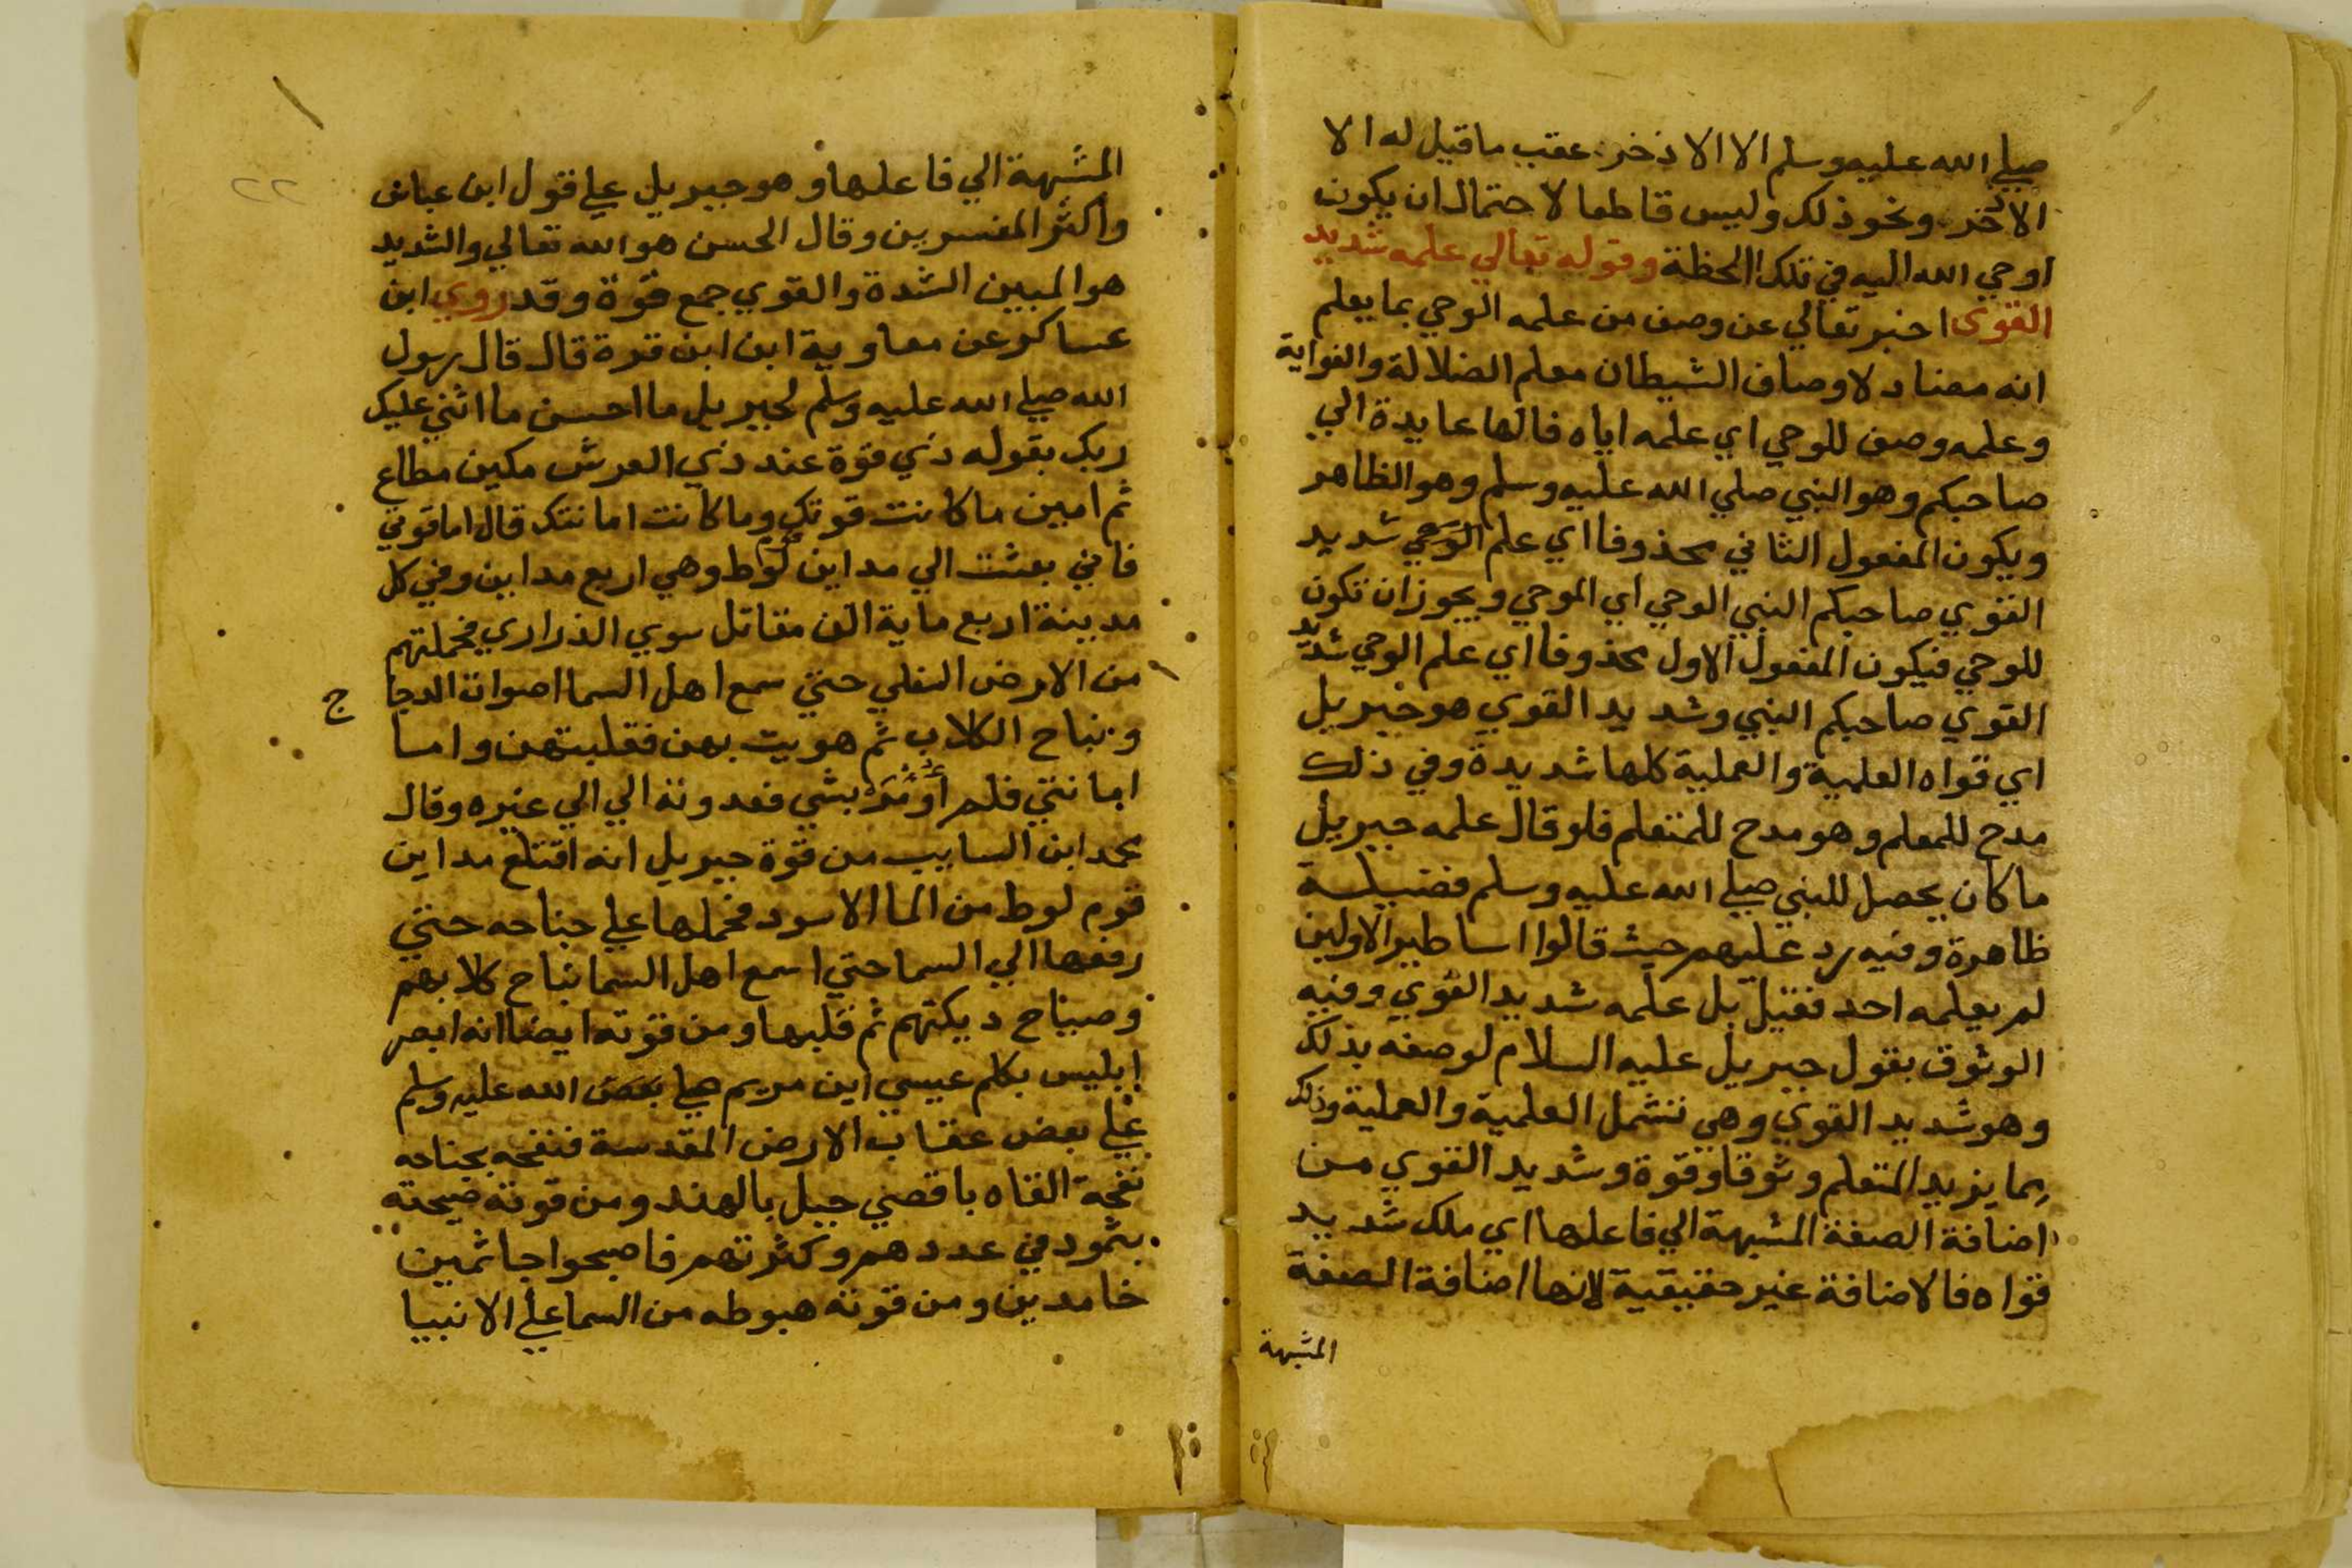 صلي الله عليه وسلم الا الاذخر عقب ما قيل له الا
الاذخر ونحو ذلك وليس قاطعا لاحتمال ان يكون
اوحي الله اليه في تلك اللحظة وقوله تعالي علمه شديد
القوى اخبر تعالي عن وصف من علمه الوحي بما يعلم
انه مضاد لاوصاف الشيطان معلم الضلالة والغواية
وعلمه وصف للوحي اي علمه اياه فالها عايدة الي
صاحبكم وهو النبي صلي الله عليه وسلم وهو الظاهر
ويكون المفعول الثاني محذوفا اي علم الوحي شديد
القوي صاحبكم النبي الوحي اي الموحي ويجوز ان تكون
للوحي فيكون المفعول الاول محذوفا اي علم الوحي شديد
القوي صاحبكم النبي وشديد القوي هو جبريل
اي قواه العلمية والعملية كلها شديدة وفي ذلك
مدح للمعلم وهو مدح للمتعلم فلو قال علمه جبريل
ما كان يحصل للنبي صلي الله عليه وسلم فضيلة
ظاهرة وفيه رد عليهم حيث قالوا اساطير الاولين
لم يعلمه احد فقيل بل علمه شديد القوي وفيه
الوثوق بقول جبريل عليه السلام لوصفه بذلك
وهو شديد القوي وهي تشمل العلمية والعملية وذلك
مما يزيد المتعلم وثوقا وقوة وشديد القوي من
اضافة الصفة المشبهة الي فاعلها اي ملك شديد
قواه فالاضافة غير حقيقية لانها اضافة الصفة
المشبهة
٢٢
المشبهة الي فاعلها وهو جبريل علي قول ابن عباس
واكثر المفسرين وقال الحسن هو الله تعالي والشديد
هو المبين الشدة والقوي جمع قوة وقد روي ابن
عساكر عن معاوية ابن ابن قرة قال قال رسول
الله صلي الله عليه وسلم لجبريل ما احسن ما اثني عليك
ربك بقوله ذي قوة عند ذي العرش مكين مطاع
ثم امين ما كانت قوتك وما كانت امانتك قال اما قوتي
فاني بعثت الي مداين لوط وهي اربع مداين وفي كل
مدينة اربع ماية الف مقاتل سوي الذراري فحملتهم
من الارض السفلي حتي سمع اهل السما اصوات الدجا
ج
ونباح الكلاب ثم هويت بهن فقلبتهن واما
امانتي فلم اومر بشي فعدوته الي الي غيره وقال
محمد ابن السايب من قوة جبريل انه اقتلع مداين
قوم لوط من الما الاسود فحملها علي جناحه حتي
رفعها الي السما حتي اسمع اهل السما نباح كلابهم
وصياح ديكتهم ثم قلبها ومن قوته ايضا انه ابصر
ابليس يكلم عيسي ابن مريم صلي الله عليه وسلم
علي بعض عقاب الارض المقدسة فنفحه بجناحه
نفحة القاه باقصي جبل بالهند ومن قوته صيحته
بثمود في عددهم وكثرتهم فاصبحوا جاثمين
خامدين ومن قوته هبوطه من السما علي الانبيا